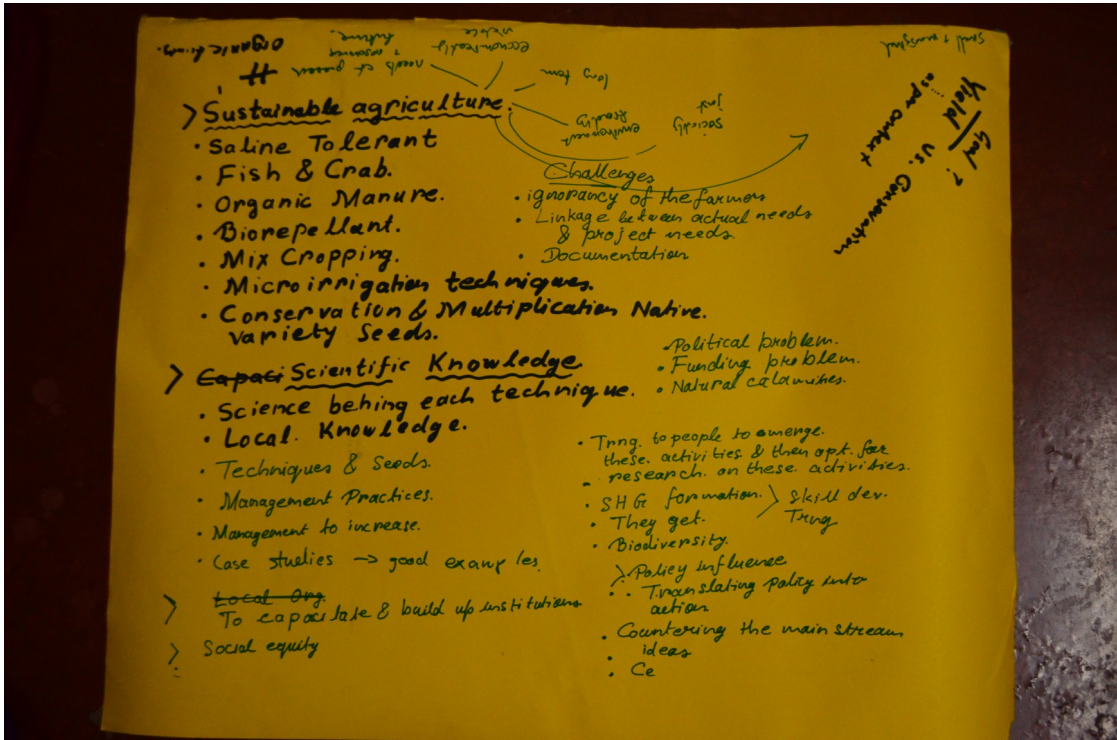 Organic
#
needs of present + resources future.
economically viable
long term
environment friendly
socially just
> Sustainable agriculture.
• Saline Tolerant
• Fish & Crab.
• Organic Manure.
• Biorepellant.
• Mix Cropping.
• Microirrigation techniques.
• Conservation & Multiplication Native.
variety Seeds.
Challenges
• ignorancy of the farmers
• Linkage between actual needs
& project needs.
• Documentation
Small + marginal
Goal?
Yield vs. Conservation
as per context
• Political problem.
• Funding problem.
• Natural calamities.
> Capaci Scientific Knowledge
• Science behing each technique.
• Local. Knowledge.
• Techniques & Seeds.
• Management Practices.
• Management to increase.
• Case studies → good examples.
> Local Org.
To capacitate & build up institutions
> Social equity
• Trng. to people to emerge.
these activities & then opt. for
research. on these activities.
• SHG formation. > Skill dev.
• They get. Trng
• Biodiversity.
> Policy influence
• Translating policy into
action
• Countering the main stream
ideas
• Ce